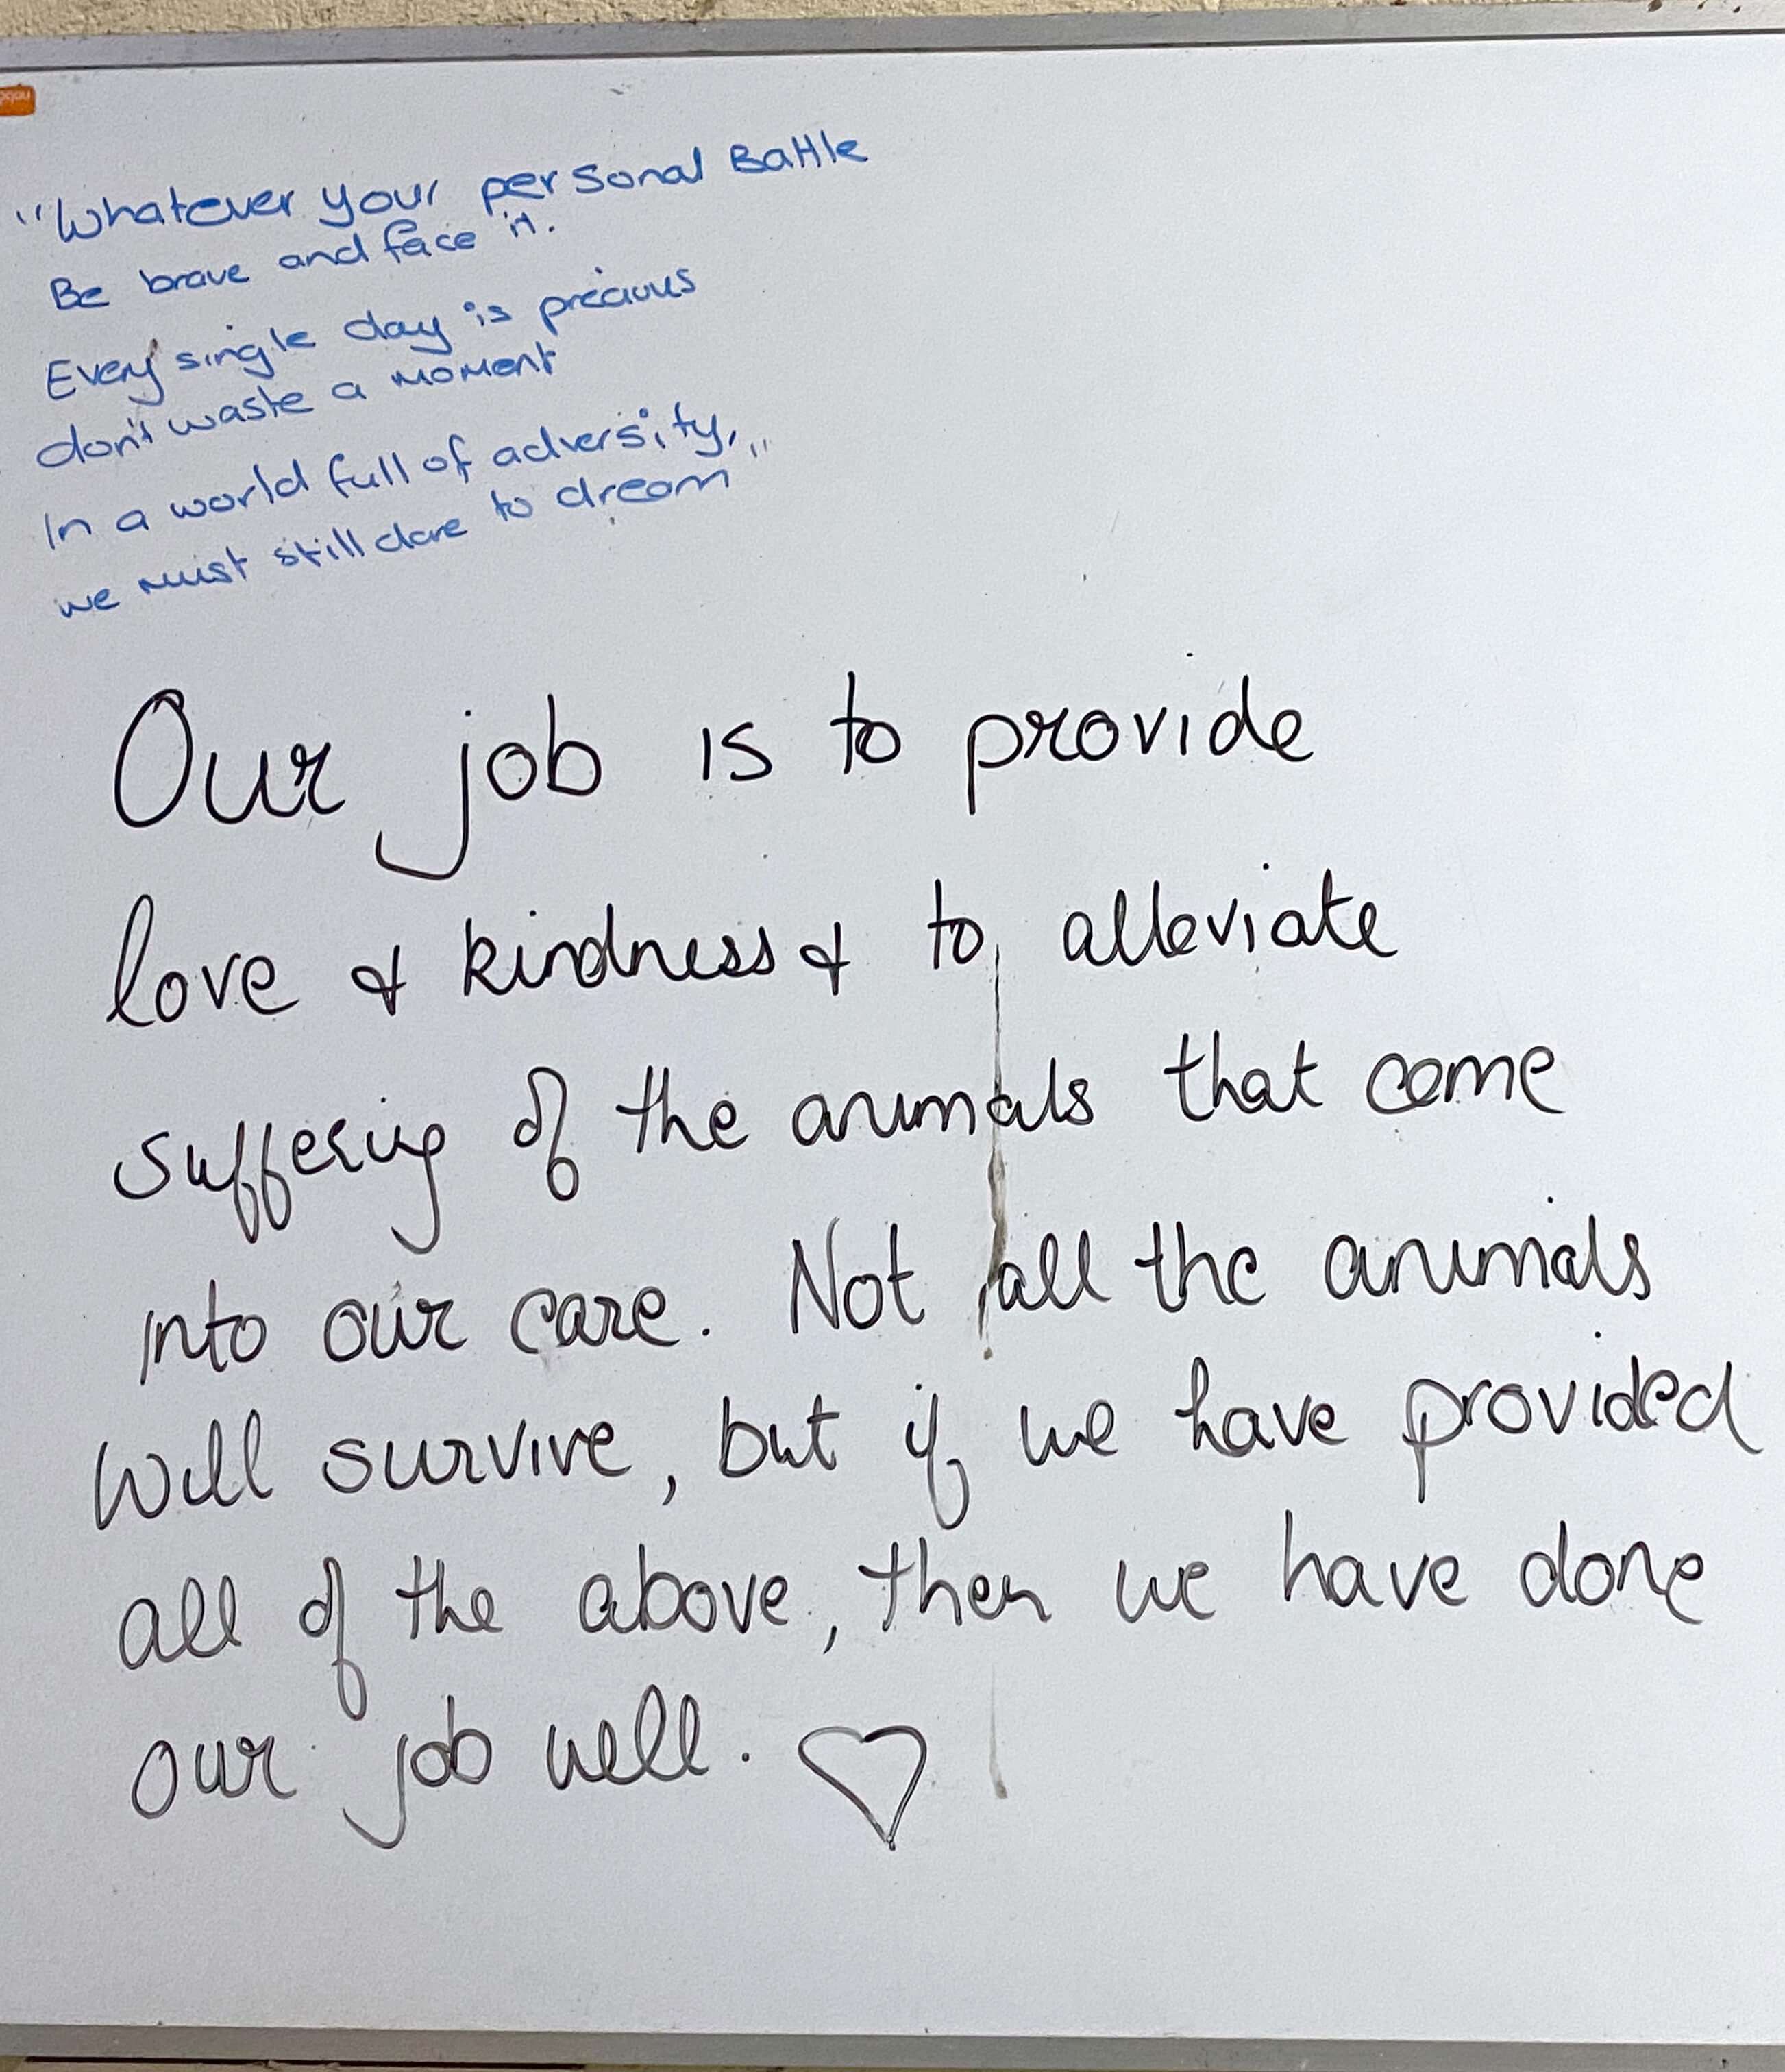 "Whatever your personal Battle
Be brave and face it.
Every single day is precious
don't waste a moment
In a world full of adversity,
we must still dare to dream"
Our job is to provide
love & kindness & to alleviate
suffering of the animals that come
into our care. Not all the animals
will survive, but if we have provided
all of the above, then we have done
our job well.